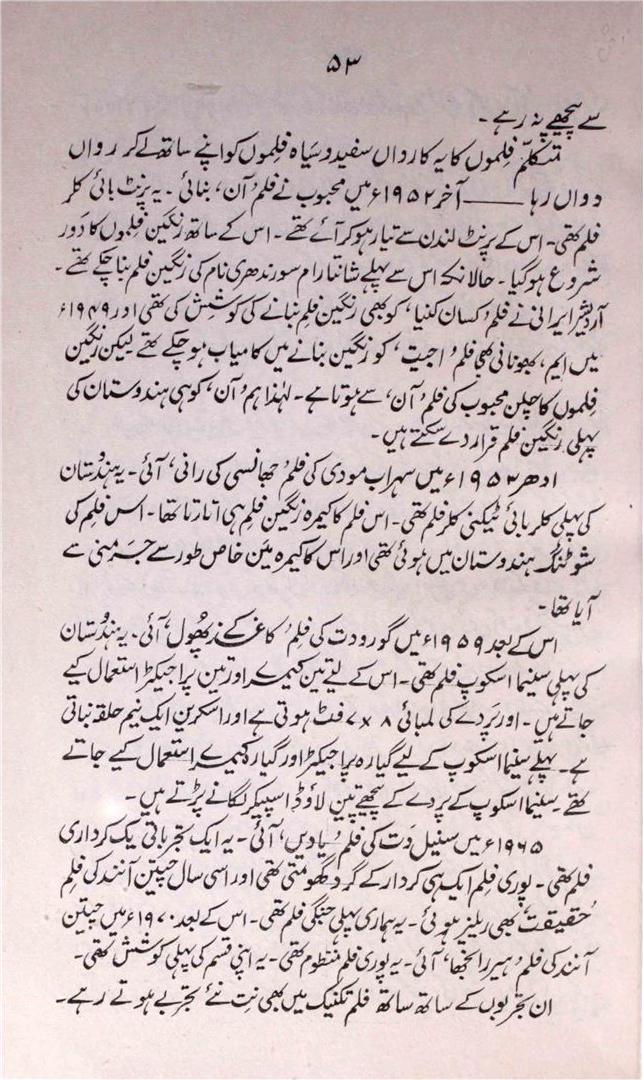 ۵۳
سے پیچھے نہ رہے۔
متکلّم فِلموں کا یہ کارواں سفید و سیاہ فِلموں کو اپنے ساتھ لے کر رواں
دواں رہا ——— آخر ۱۹۵۲ء میں محبوب نے فلم ’آن‘ بنائی۔ یہ پرنٹ بائی کلر
فلم تھی۔ اس کے پرنٹ لندن سے تیار ہو کر آئے تھے۔ اس کے ساتھ رنگین فِلموں کا دَور
شروع ہو گیا۔ حالانکہ اس سے پہلے شانتا رام سورندھری نام کی رنگین فلم بنا چکے تھے۔
آردیشیر ایرانی نے فلم ’کسان کنیا‘ کو بھی رنگین فلم بنانے کی کوشش کی تھی اور ۱۹۴۹ء
میں ایم، بھونانی بھی فلم ’اجیت‘ کو رنگین بنانے میں کامیاب ہو چکے تھے لیکن رنگین
فِلموں کا چلن محبوب کی فلم ’آن‘ سے ہوتا ہے۔ لہٰذا ہم ’آن‘ کو ہی ہندوستان کی
پہلی رنگین فلم قرار دے سکتے ہیں۔
ادھر ۱۹۵۳ء میں سہراب مودی کی فلم ’جھانسی کی رانی‘ آئی۔ یہ ہندُوستان
کی پہلی کلر بائی ٹیکنی کلر فلم تھی۔ اس فلم کا کیمرہ رنگین فلم ہی اتارتا تھا۔ اس فلم کی
شوٹنگ ہندوستان میں ہوئی تھی اور اس کا کیمرہ مین خاص طور سے جرمنی سے
آیا تھا۔
اس کے بعد ۱۹۵۹ء میں گورو دت کی فلم ’کاغذ کے پھُول‘ آئی۔ یہ ہندُستان
کی پہلی سنیما اسکوپ فلم تھی۔ اس کے لیے تین کیمرے اور تین پراجیکڑ استعمال کیے
جاتے ہیں۔ اور پَردے کی لمبائی ۸ x ۷ فٹ ہوتی ہے اور اسکرین ایک نیم حلقہ بناتی
ہے۔ پہلے سنیما اسکوپ کے لیے گیارہ پراجیکڑ اور گیارہ کیمرے استعمال کیے جاتے
تھے۔ سنیما اسکوپ کے پردے کے پیچھے تین لاؤڈ اسپیکر لگانے پڑتے ہیں۔
۱۹۶۵ء میں سنیل دَت کی فلم ’یادیں‘ آئی۔ یہ ایک تجرباتی یک کرداری
فلم تھی۔ پوری فلم ایک ہی کردار کے گرد گھومتی تھی اور اسی سال چیتن آنند کی فلم
’حقیقت‘ بھی ریلیز ہوئی۔ یہ ہماری پہلی جنگی فلم تھی۔ اس کے بعد ۱۹۷۰ء میں چیتن
آنند کی فلم ’ہیر رانجھا‘ آئی۔ یہ پوری فلم منظوم تھی۔ یہ اپنی قسم کی پہلی کوشش تھی۔
ان تجربوں کے ساتھ ساتھ فلم تکنیک میں بھی نِت نئے تجربے ہوتے رہے۔